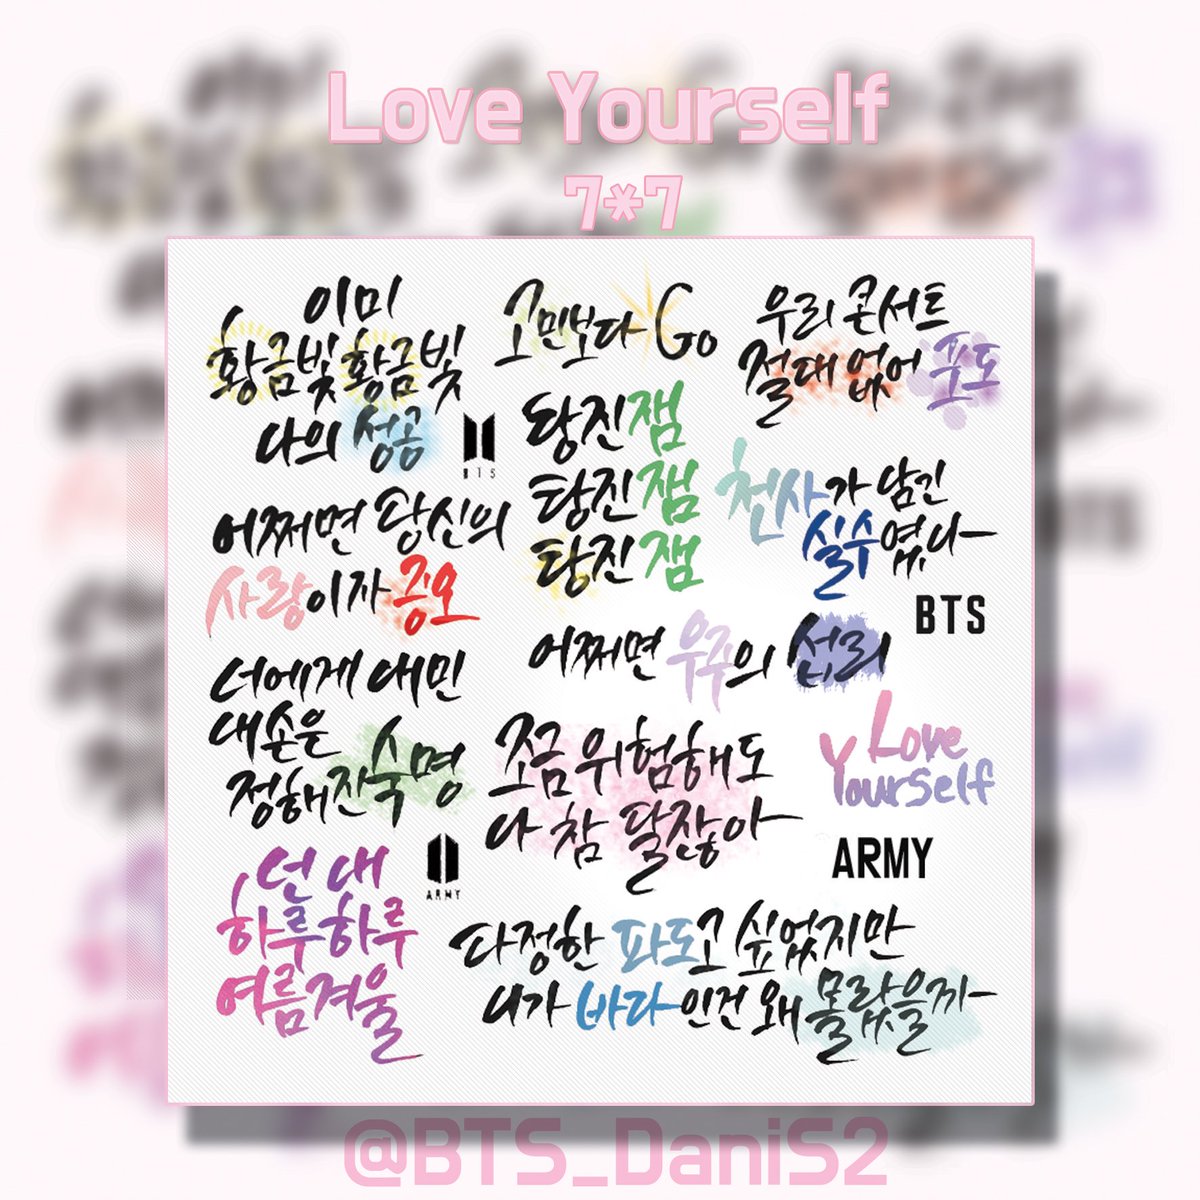 Love Yourself
7*7
이미
황금빛 황금빛
나의 성공
BTS
고민보다 Go
우리 콘서트
절대 없어 포도
탕진잼
탕진잼
탕진잼
천사가 남긴
실수였나
BTS
어쩌면 당신의
사랑이자 증오
어쩌면 우주의 섭리
너에게 내민
내 손은
정해진 숙명
조금 위험해도
나 참 달잖아
Love
Yourself
ARMY
ARMY
넌 내
하루하루
여름겨울
다정한 파도고 싶었지만
니가 바다인건 왜 몰랐을까
@BTS_DaniS2